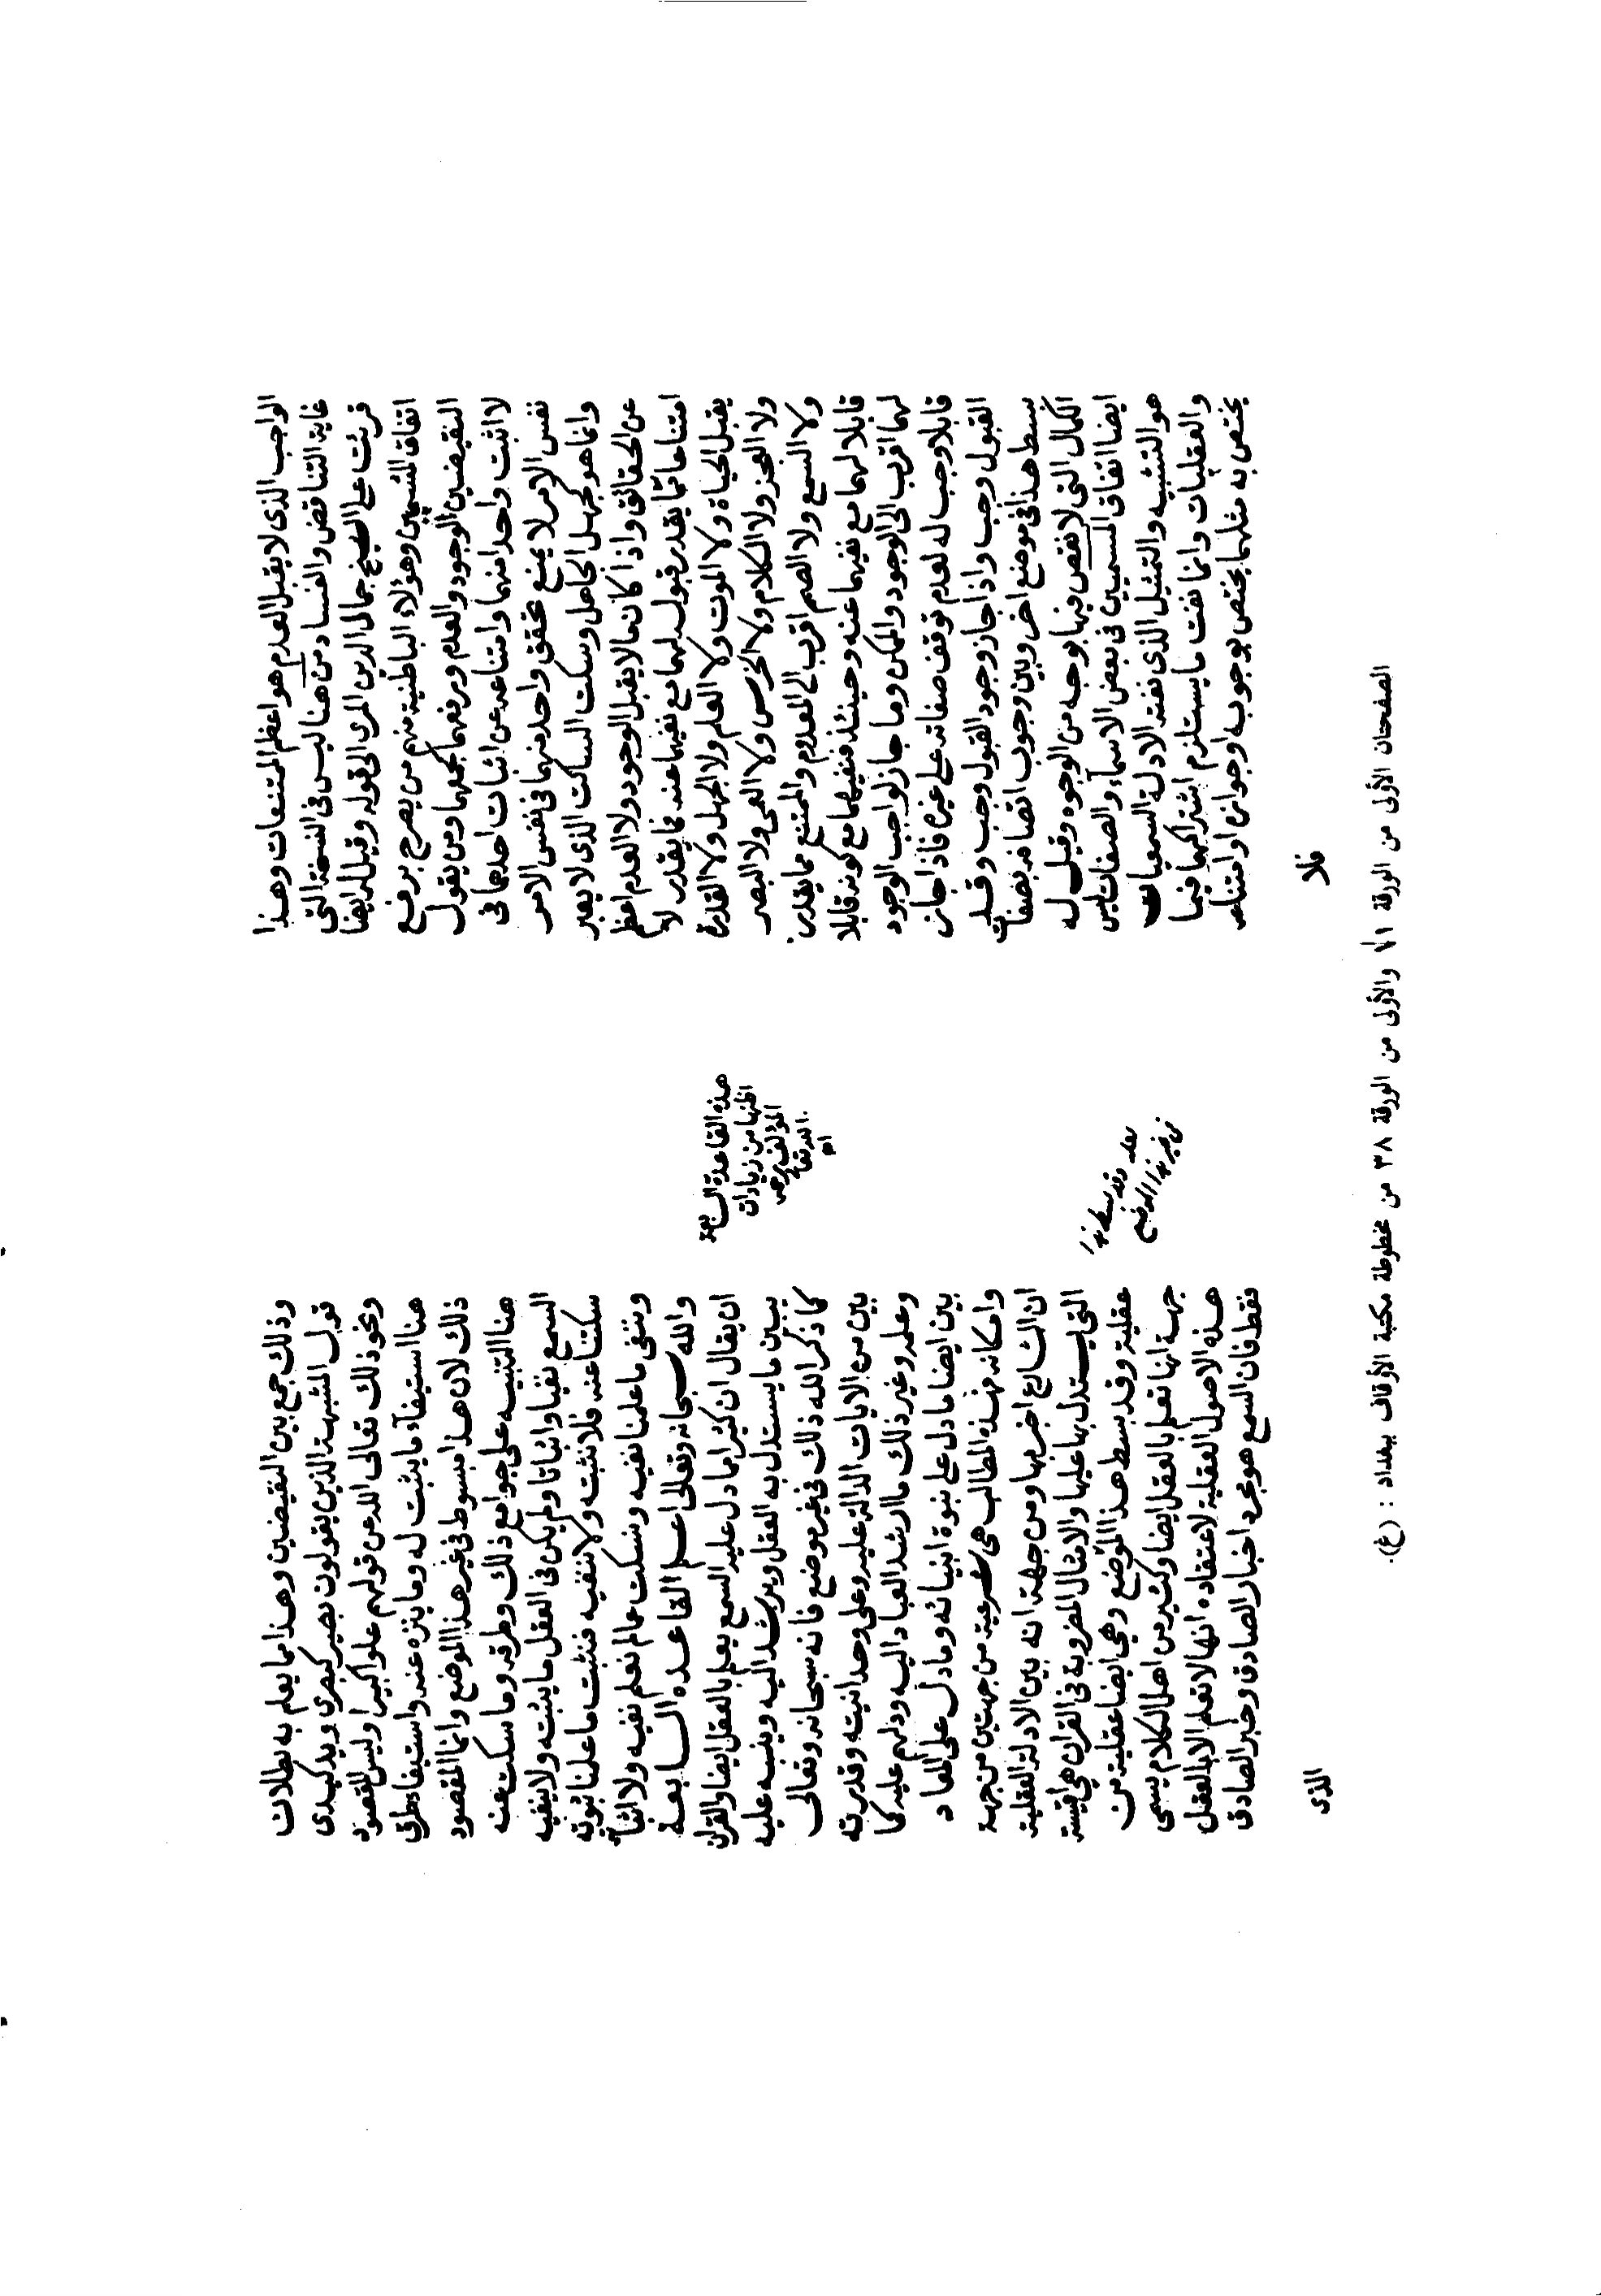 الواجب الذى لا يقبل العدم هو اعظم الممتنعات وهذا
غاية التناقض والفساد من هنا ليس فى النسخة التى
قرئت على الشيخ جمال الدين المزى الى قوله وقيل له ايضا
اتفاق المسمين وهؤلاء الباطنية منهم من يصرح برفع
النقيضين الوجود والعدم ورفعهما كجمعهما ومن يقول
لا اثبت واحدا منهما وامتناعه عن اثبات احدهما فى
نفس الامر لا يمنع تحقق واحد منهما فى نفس الامر
وانما هو كجهل الجاهل وسكت الساكت الذى لا يعبر
عن الحقائق واذا كان مالا يقبل الوجود ولا العدم اعظم
امتناعا مما يقدر قبوله لهما مع نفيهما عنه فما يقدر لا
يقبل الحياة ولا الموت ولا العلم ولا الجهل ولا القدرة
ولا العجز ولا الكلام ولا الخرس ولا العمى ولا البصر
ولا السمع ولا الصم اقرب الى المعدوم والممتنع مما يقدر
قابلا لهما مع نفيهما عنه وحينئذ فنفيهما مع كونه قابلا
لهما اقرب الى الوجود والممكن وما جاز لواجب الوجود
قابلا وجب له لعدم توقف صفاته على غيره فاذا جاز
القبول وجب واذا جاز وجود القبول وجب وقد
بسط هذا فى موضع اخر وبين وجوب اتصافه بصفات
الكمال التى لا نقص فيها بوجه من الوجوه وقيل له
ايضا اتفاق المسميين فى بعض الاسماء والصفات ليس
هو التشبيه والتمثيل الذى نفته الادلة السمعيات
والعقليات وانما نفت ما يستلزم اشتراكهما فيما
يختص به مثلهما يختص بوجوبه او جوازه او امتناعه
فلا
هذه القاعدة السابعة
اظنها من زيادات
المؤلف رحمه
الله تعالى
اه
وذلك جمع بين النقيضين وهذا مما يعلم به بطلان
قول المشبهة الذين يقولون بصير كبصرى ويد كيدى
ونحو ذلك تعالى الله عن قولهم علوا كبيرا وليس المقصود
هنا استيفاء ما يثبت له وما ينزه عنه واستيفاء طرق
ذلك لان هذا مبسوط فى غير هذا الموضع وانما المقصود
هنا التنبيه على جوامع ذلك وطرقه وما سكت عنه
السمع نفيا واثباتا ولم يكن فى العقل ما يثبته ولا ينفيه
سكتنا عنه فلا نثبته ولا ننفيه فنثبت ما علمنا ثبوته
وننفى ما علمنا نفيه ونسكت عما لم نعلم نفيه ولا اثباته
والله سبحانه وتعالى اعلم القاعده السابعة
ان يقال ان كثيرا مما دل عليه السمع يعلم بالعقل ايضا والقران
يبين ما يستدل به العقل ويرشد اليه وينبه عليه
كما ذكر الله ذلك فى غير موضع فانه سبحانه وتعالى
بين من الايات الدالة عليه وعلى وحدانيته وقدرته
وعلمه وغير ذلك ما ارشد العباد اليه ودلهم عليه كما
بين ايضا ما دل على نبوة انبيائه وما دل على المعاد
وامكانه فهذه المطالب هى شرعية من جهتين من جهة
ان الشارع اخبر بها ومن جهة انه بين الادلة العقلية
التى يستدل بها عليها والامثال المضروبة فى القران هى اقيسة
عقلية وقد بسط هذا الموضع وهى ايضا عقلية من
جهة انها تعلم بالعقل ايضا وكثير من اهل الكلام يسمى
هذه الاصول العقلية لاعتقاده انها لا تعلم الا بالعقل
فقط فان السمع هو مجرد اخبار الصادق وخبر الصادق
الذى
الصفحتان الأولى من الورقة والأولى من الورقة ٣٨ من مخطوطة مكتبة الأوقاف ببغداد : (غ).